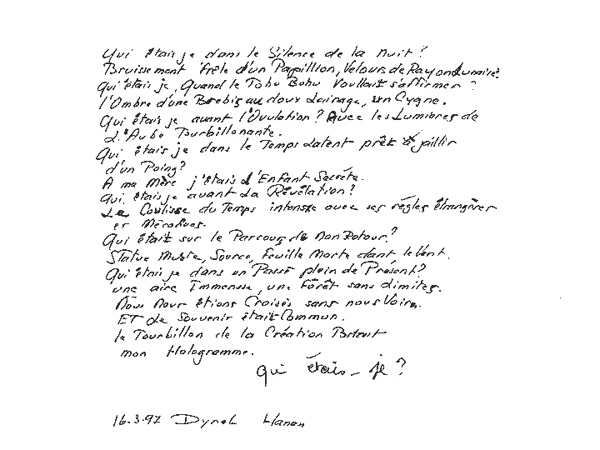 Qui étais je dans le Silence de la nuit?
Bruissement frêle d'un Papillon, Velours de Rayon Lunaire?
Qui étais je, Quand le Tohu Bohu Voullait s'affirmer?
l'Ombre d'une Brebis au doux Lainage, un Cygne.
Qui étais je avant l'Ovulation? Avec les Lumières de
L'Aube Tourbillonante.
Qui étais je dans le Temps Latent prêt à jaillir
d'un Poing?
A ma Mère j'étais l'Enfant Secrète.
Qui étais je avant La Révélation?
La Coulisse du Temps intense avec ses règles étrangères
et
Qui était sur le Parcours de mon Retour?
Statue Muette, Source, Feuille Morte dans le Vent.
Qui étais je dans un Passé plein de Présent?
une aire Immense, une Forêt sans Limites.
Nous Nous étions Croisés sans nous Voir.
ET Le Souvenir était Commun.
le Tourbillon de la Création Portant
mon Hologramme.
Qui étais-je?
16.3.97 Dyrol Hanan